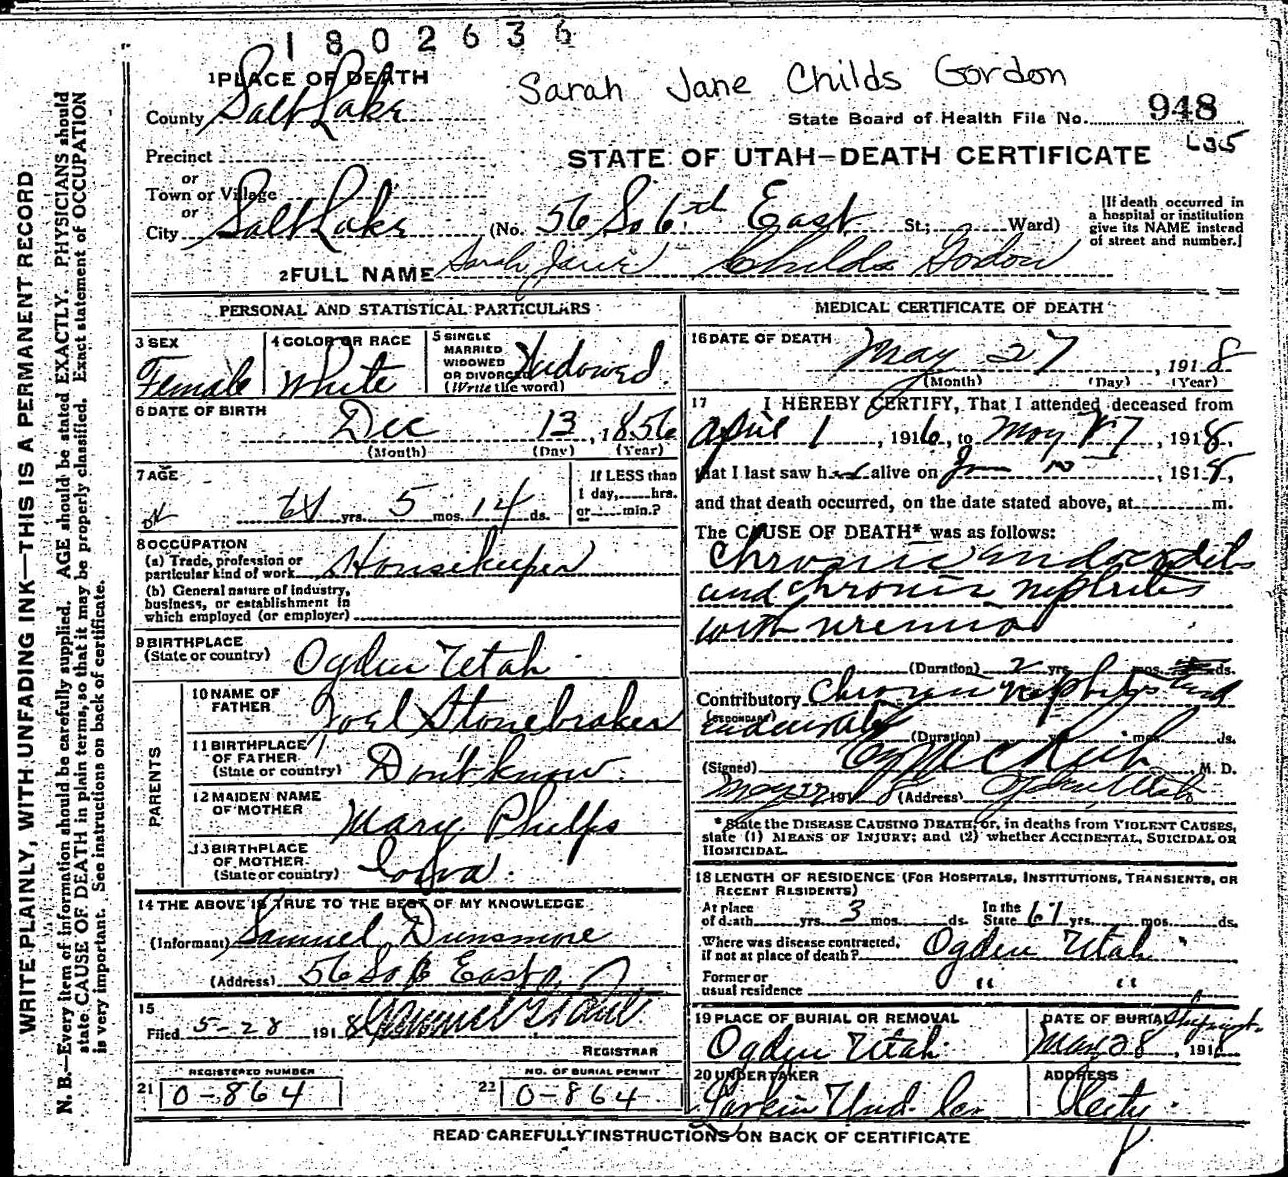 1802636
Sarah Jane Childs Gordon
1 PLACE OF DEATH
County Salt Lake
State Board of Health File No. 948
Precinct
or
Town or Village
or
City Salt Lake (No. 56 So 6th East St.; Ward)
STATE OF UTAH—DEATH CERTIFICATE
[If death occurred in
a hospital or institution
give its NAME instead
of street and number.]
2 FULL NAME Sarah Jane Childs Gordon
PERSONAL AND STATISTICAL PARTICULARS
3 SEX
Female
4 COLOR OR RACE
White
5 SINGLE
MARRIED
WIDOWED
OR DIVORCED
(Write the word)
Widowed.
6 DATE OF BIRTH
Dec 13, 1856
(Month) (Day) (Year)
7 AGE
61 yrs. 5 mos. 14 ds.
If LESS than
1 day, hrs.
or min.?
8 OCCUPATION
(a) Trade, profession or
particular kind of work Housekeeper
(b) General nature of industry,
business, or establishment in
which employed (or employer)
9 BIRTHPLACE
(State or country) Ogden Utah
PARENTS
10 NAME OF
FATHER Joel Stonebraker
11 BIRTHPLACE
OF FATHER
(State or country) Don't know.
12 MAIDEN NAME
OF MOTHER Mary Phelps
13 BIRTHPLACE
OF MOTHER
(State or country) Iowa.
14 THE ABOVE IS TRUE TO THE BEST OF MY KNOWLEDGE
(Informant) Samuel Dunsmore
(Address) 56 So 6 East
15
Filed 5-28 1918
REGISTRAR
REGISTERED NUMBER
21 0-864
NO. OF BURIAL PERMIT
22 0-864
MEDICAL CERTIFICATE OF DEATH
16 DATE OF DEATH
May 27, 1918
(Month) (Day) (Year)
17 I HEREBY CERTIFY, That I attended deceased from
April 1, 1916, to May 27, 1918,
that I last saw her alive on Jan 10, 1918,
and that death occurred, on the date stated above, at m.
The CAUSE OF DEATH* was as follows:
Chronic endocarditis
and chronic nephritis
with uremia
(Duration) 2 yrs. mos. ds.
Contributory Chronic Nephritis and
(SECONDARY)
(Duration) yrs. mos. ds.
(Signed) M. D.
191 8 (Address) Ogden, Utah
* State the DISEASE CAUSING DEATH or, in deaths from VIOLENT CAUSES,
state (1) MEANS OF INJURY; and (2) whether ACCIDENTAL, SUICIDAL OR
HOMICIDAL.
18 LENGTH OF RESIDENCE (FOR HOSPITALS, INSTITUTIONS, TRANSIENTS, OR
RECENT RESIDENTS)
At place
of death yrs. 3 mos. ds.
In the
State 61 yrs. mos. ds.
Where was disease contracted,
if not at place of death? Ogden Utah
Former or
usual residence " "
19 PLACE OF BURIAL OR REMOVAL
Ogden Utah.
DATE OF BURIAL Shipment
May 28, 1918
20 UNDERTAKER
Larkin Und. Co
ADDRESS
City.
READ CAREFULLY INSTRUCTIONS ON BACK OF CERTIFICATE
WRITE PLAINLY, WITH UNFADING INK—THIS IS A PERMANENT RECORD
N. B.—Every item of information should be carefully supplied. AGE should be stated EXACTLY. PHYSICIANS should
state CAUSE OF DEATH in plain terms, so that it may be properly classified. Exact statement of OCCUPATION
is very important. See instructions on back of certificate.